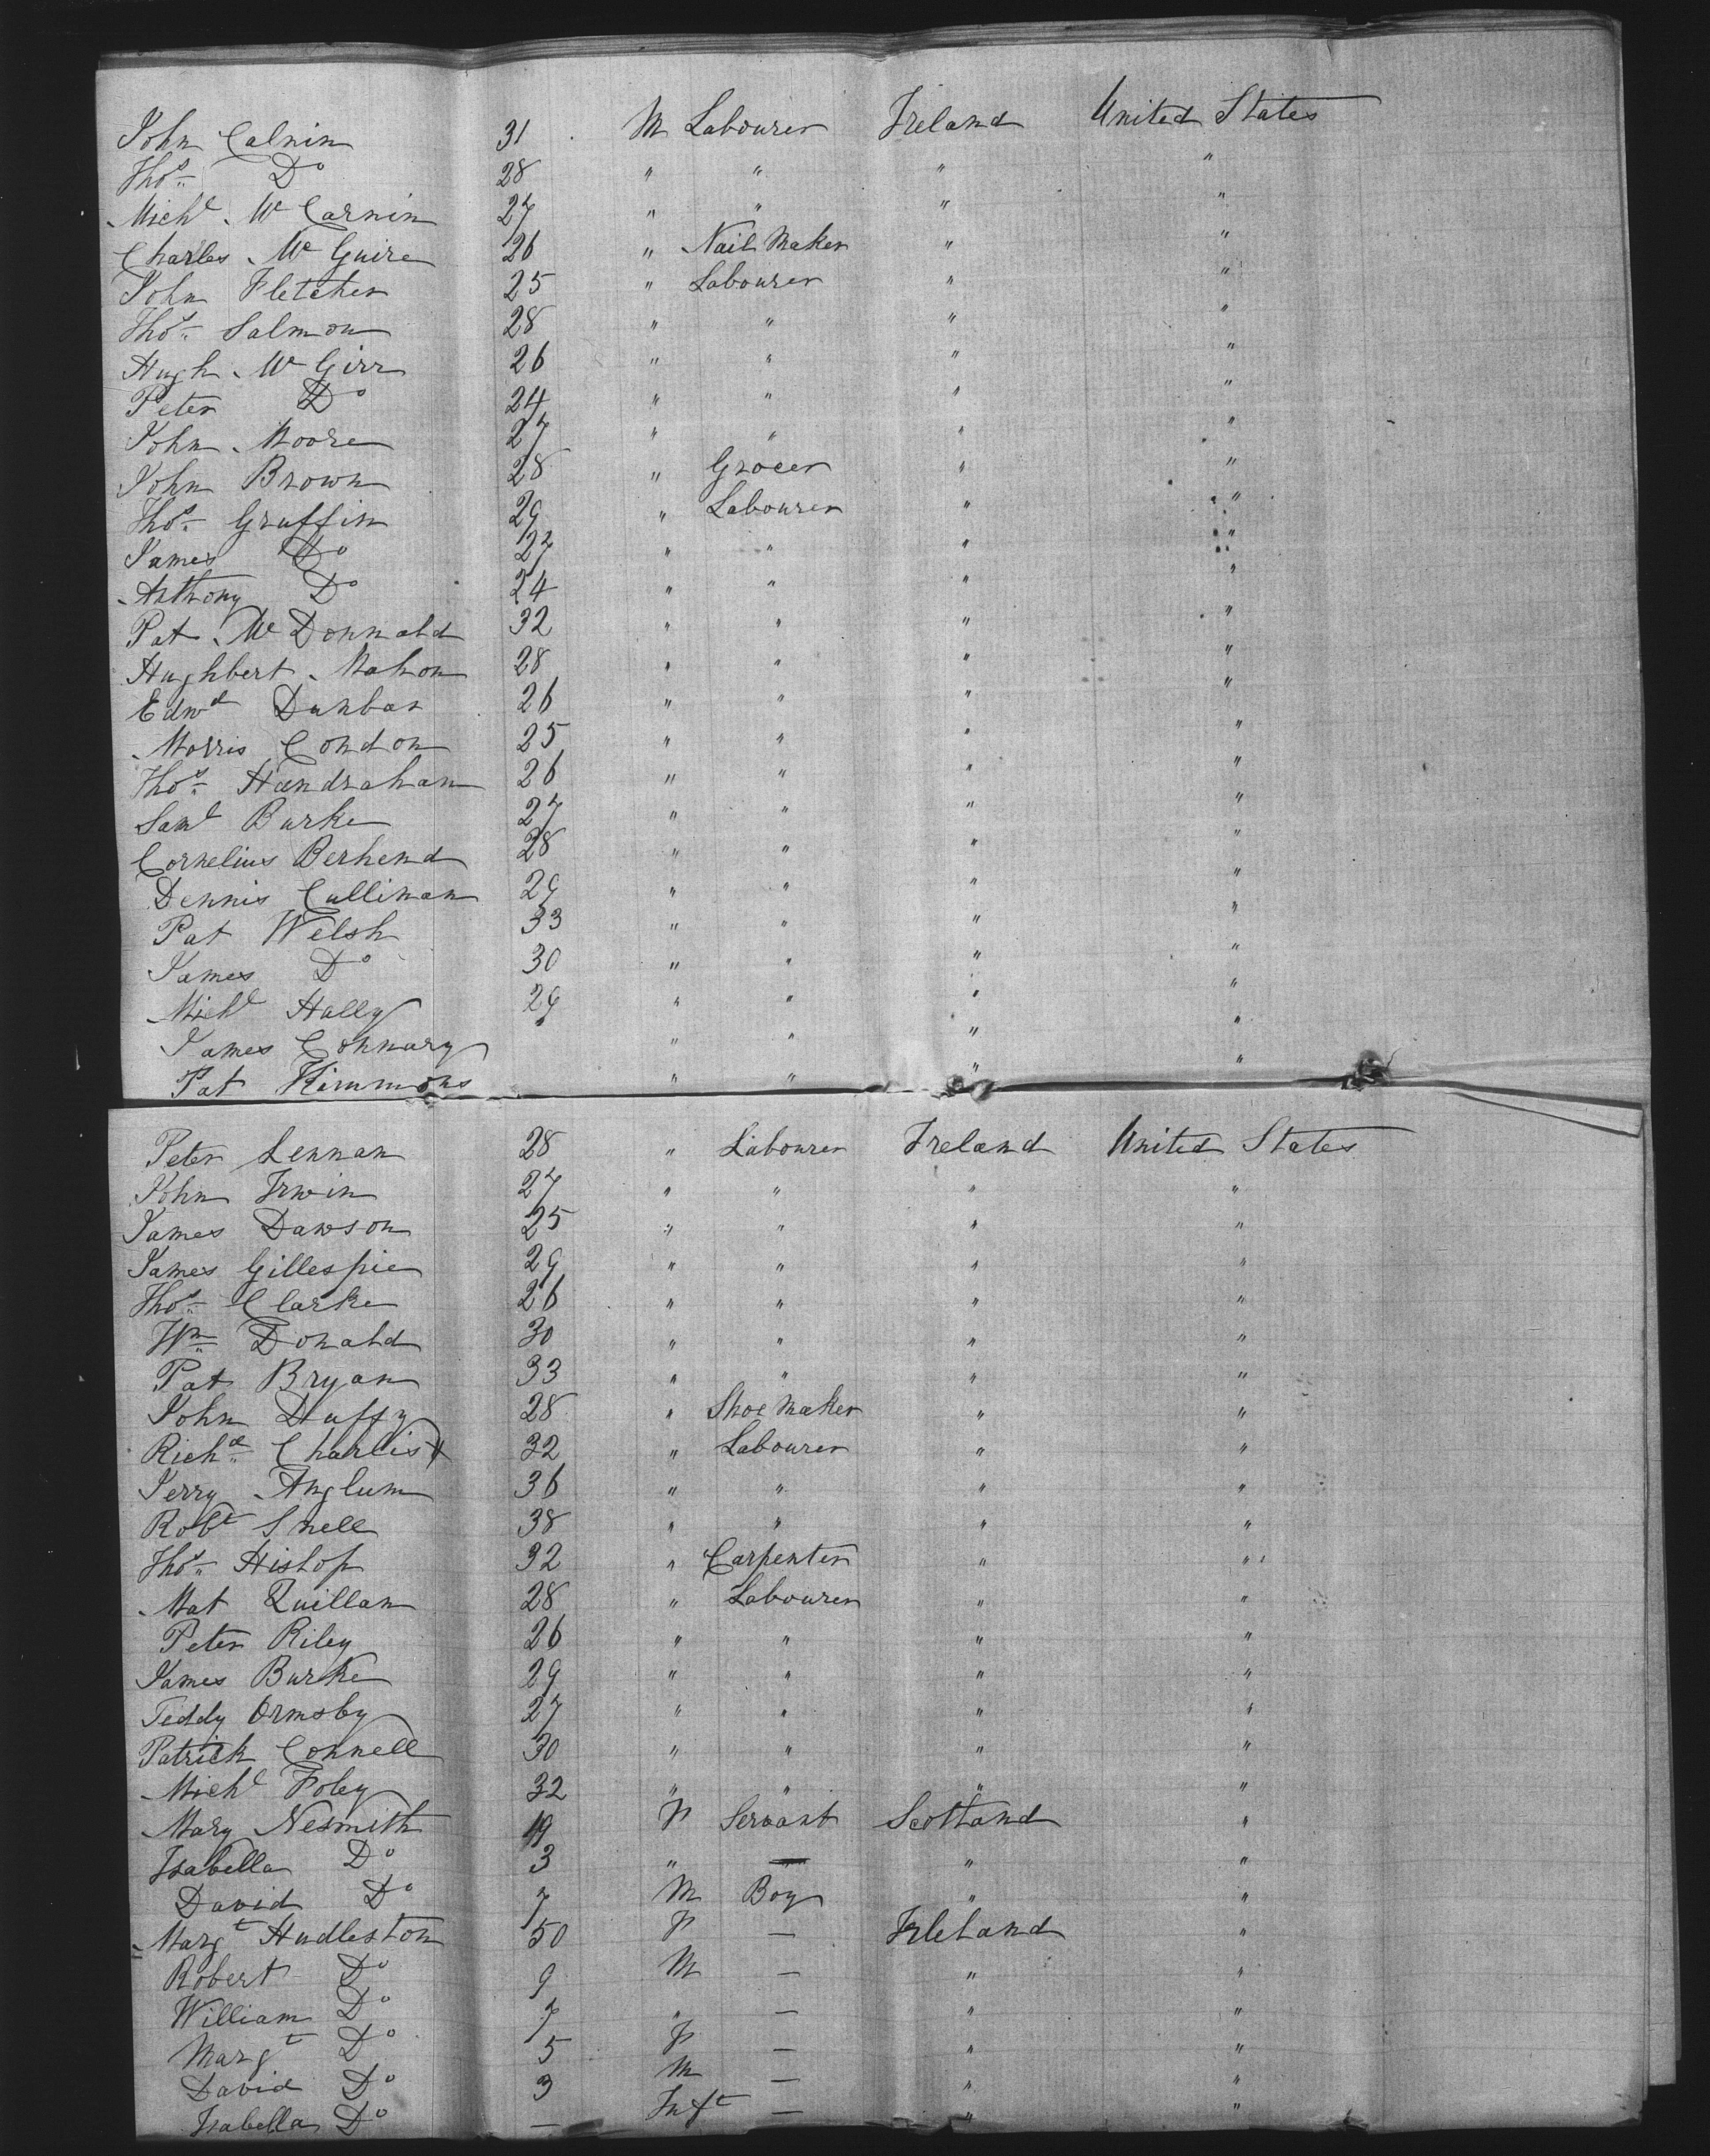 John Calnin 31 M Labourer Ireland United States
Thos Do 28 " " " "
Michl McCarnin 27 " " " "
Charles McGuire 26 " Nail Maker " "
John Fletcher 25 " Labourer " "
Thos Salmon 28 " " " "
Hugh McGirr 26 " " " "
Peter Do 24 " " " "
John Moore 27 " " " "
John Brown 28 " Grocer " "
Thos Gruffin 29 " Labourer " "
James Do 27 " " " "
Anthony Do 24 " " " "
Pat McDonnald 32 " " " "
Hughbert Mahon 28 " " " "
Edwd Dunbar 26 " " " "
Morris Condon 25 " " " "
Thos Handrahan 26 " " " "
Saml Burke 27 " " " "
Cornelius Berhend 28 " " " "
Dennis Cullinan 29 " " " "
Pat Welsh 33 " " " "
James Do 30 " " " "
Michl Hally 29 " " " "
James Connary " " " "
Pat Kimmons " " " "
Peter Lennan 28 " Labourer Ireland United States
John Irwin 27 " " " "
James Dawson 25 " " " "
James Gillespie 29 " " " "
Thos Clarke 26 " " " "
Wm Donald 30 " " " "
Pat Bryan 33 " " " "
John Duffy 28 " Shoe Maker " "
Richd 32 " Labourer " "
Jerry Anglum 36 " " " "
Robt Snell 38 " " " "
Thos Hislop 32 " Carpenter " "
Mat Quillan 28 " Labourer " "
Peter Riley 26 " " " "
James Burke 29 " " " "
Teddy Ormsby 27 " " " "
Patrick Connell 30 " " " "
Michl Foley 32 " " " "
Mary Nesmith 19 F Servant Scotland "
Isabella Do 3 " — " "
David Do 7 M Boy " "
Margt Hudleston 50 F — Ireland "
Robert Do 9 M — " "
William Do 7 " — " "
Margt Do 5 F — " "
David Do 3 M — " "
Isabella Do — Inft — " "